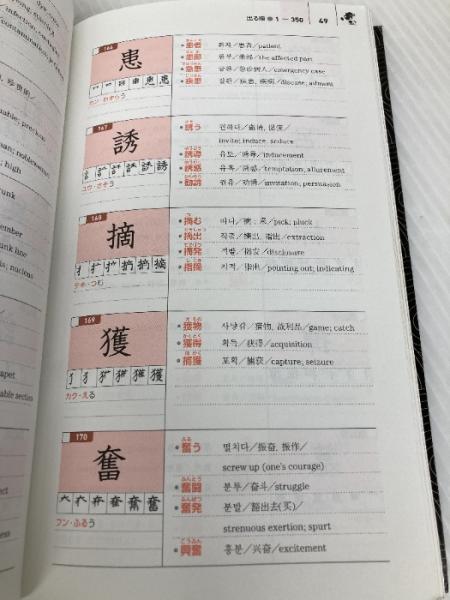 出る順 1 — 350 49
166
患
カン・わずらう
患者 환자／患者／patient
患部 환부／患部／the affected part
急患 급환／急诊病人／emergency case
疾患 질환／疾患，疾病／disease; ailment
167
誘
ユウ・さそう
誘う
invite; induce; seduce
誘導 유도／诱导／inducement
誘惑 유혹／诱惑／temptation, allurement
勧誘 권유／劝诱／invitation, persuasion
168
摘
テキ・つむ
摘む 따다／摘，采／pick; pluck
摘出 적출／摘出，指出／extraction
摘発 적발／揭发／disclosure
指摘 지적／指出／pointing out; indicating
169
獲
カク・える
獲物 사냥감／猎物，战利品／game; catch
獲得 획득／获得／acquisition
捕獲 포획／捕获／capture; seizure
170
奮
フン・ふるう
奮う 떨치다／振奋，振作／
screw up (one's courage)
奮闘 분투／奋斗／struggle
奮発 분발／豁出去(买)／
strenuous exertion; spurt
興奮 흥분／兴奋／excitement
member
nk line
s, nucleus
apet
able section